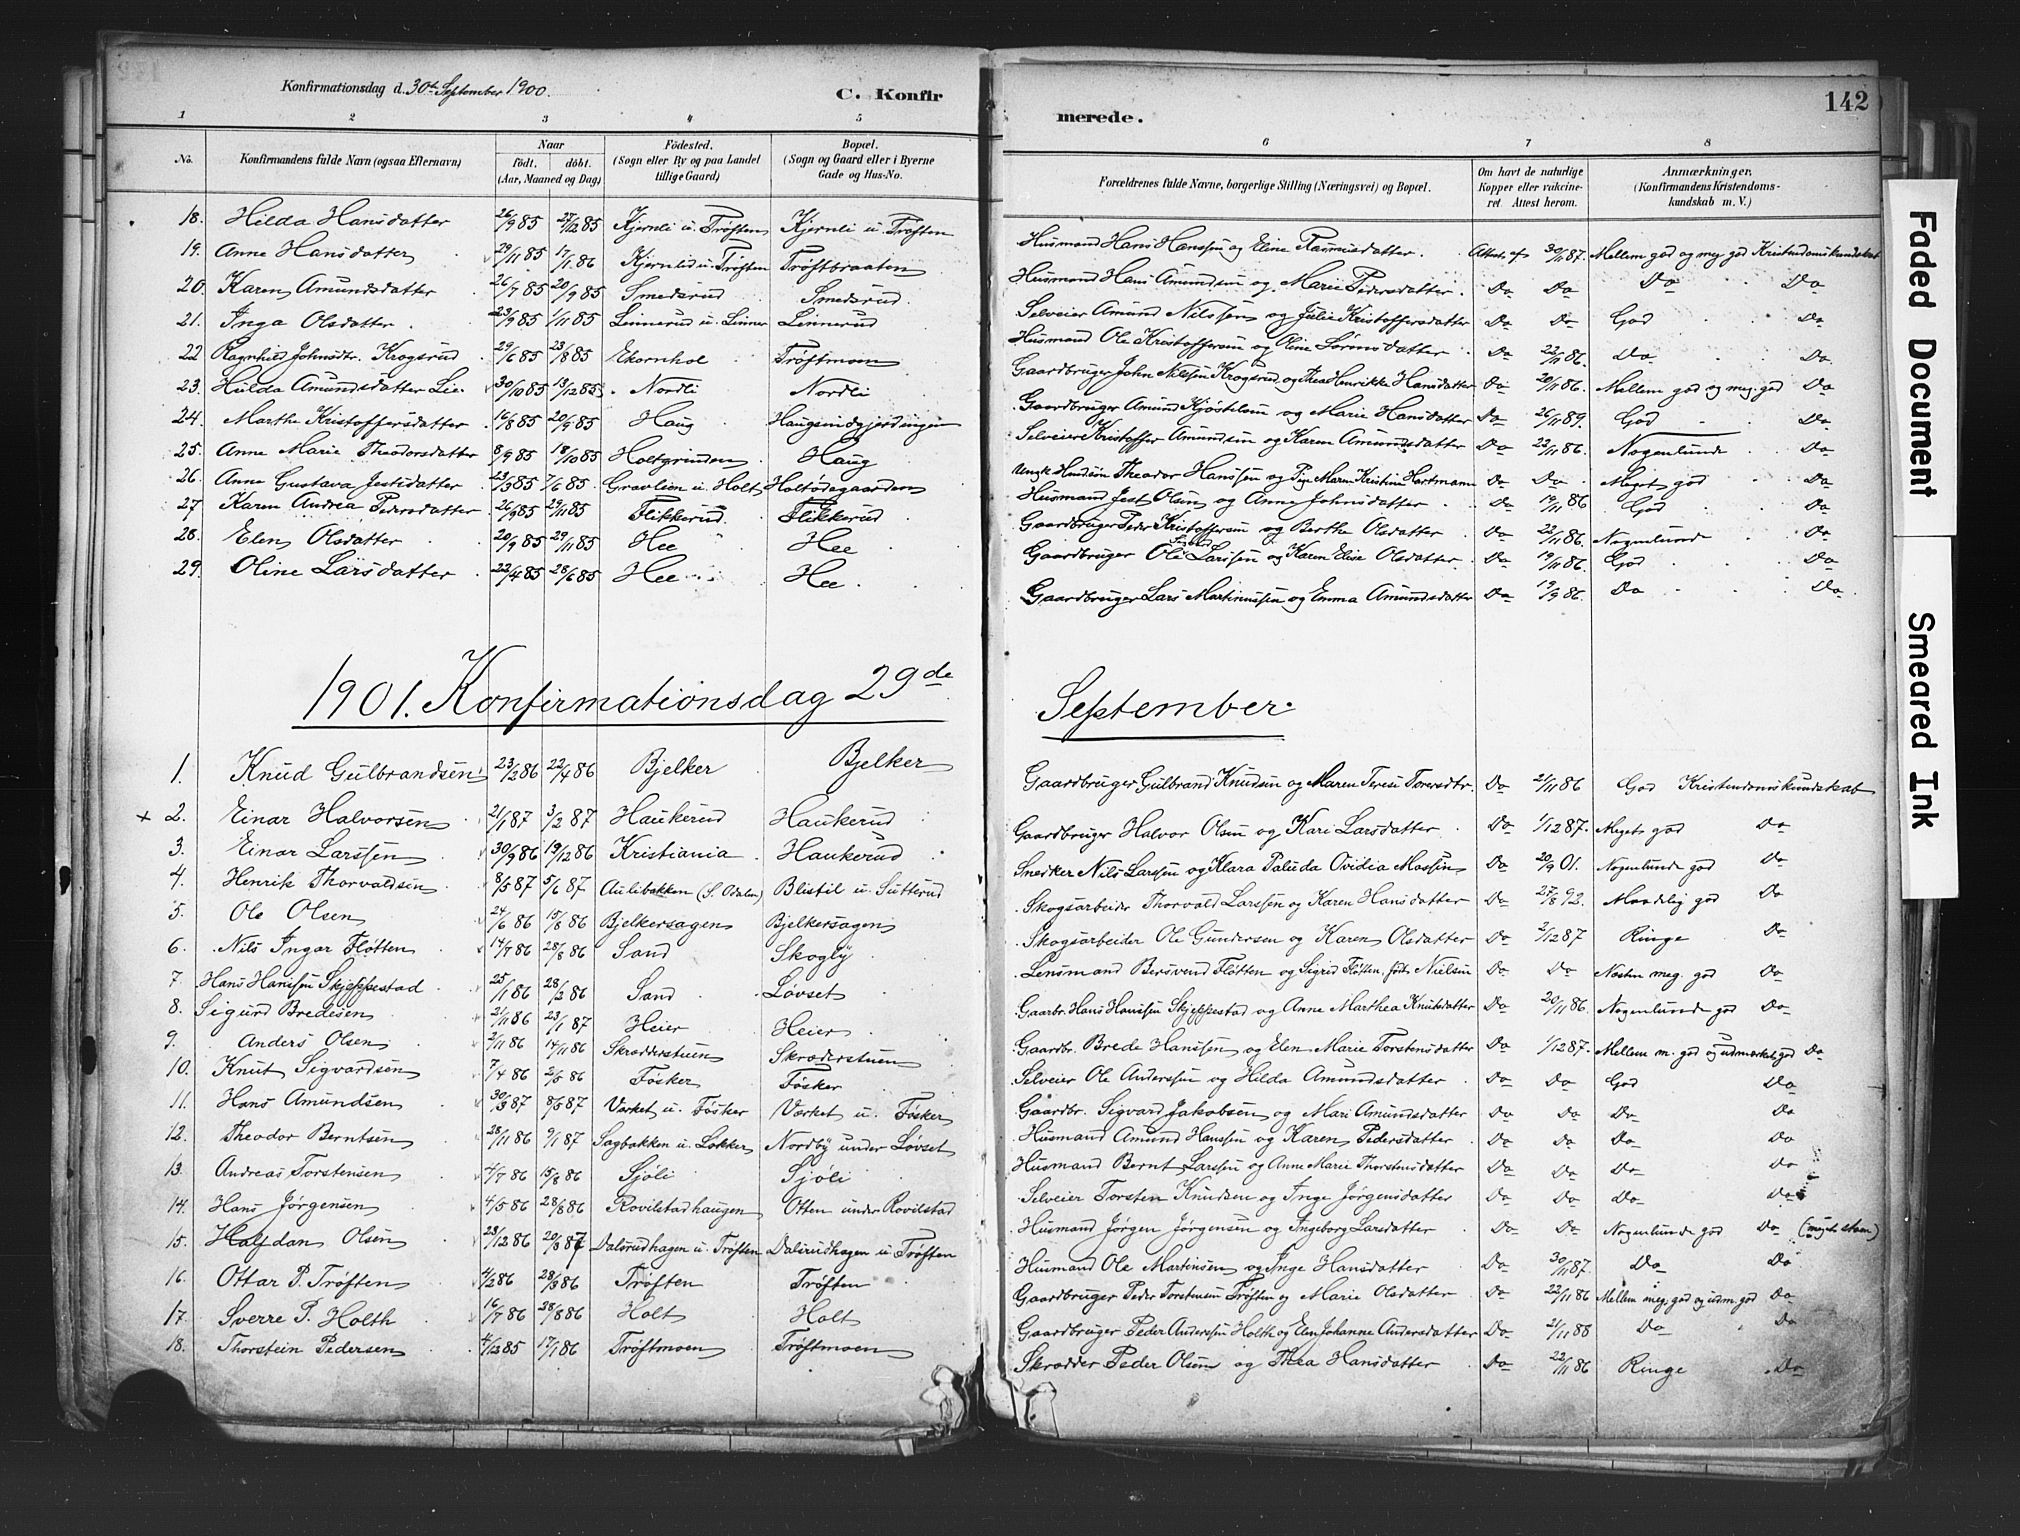 Konfirmationsdag d. 30te September 1900.
C. Konfirmerede.
142
1 2 3 4 5 6 7 8
No. Konfirmandens fulde Navn (ogsaa Efternavn) Naar født. døbt. (Aar, Maaned og Dag) Fødested. (Sogn eller By og paa Landet tillige Gaard) Bopæl. (Sogn og Gaard eller i Byerne Gade og Hus-No.) Forældrenes fulde Navne, borgerlige Stilling (Næringsvei) og Bopæl. Om havt de naturlige Kopper eller vakcineret. Attest herom. Anmærkninger. (Konfirmandens Kristendomskundskab m. V.)
18. Hilda Hansdatter 26/9 85 27/12 85 Kjernli u. Trøften Kjernli u. Trøften Husmand Hans Hanssen og Eline Rasmusdatter. Attest af 30/11 87. Mellem god og meg. god Kristendomskundskab
19. Anne Hansdatter 29/11 85 17/1 86 Kjernli u. Trøften Trøftbraaten Husmand Hans Amundsen og Marie Pedersdatter. Do Do Do Do
20. Karen Amundsdatter 26/7 85 20/9 85 Smedsrud Smedsrud Selveier Amund Nilssen og Julie Kristoffersdatter Do Do God Do
21. Inga Olsdatter 23/9 85 1/11 85 Linnerud u. Linner Linnerud Husmand Ole Kristoffersen og Oline Sørensdatter Do 22/11 86. Do Do
22 Ragnhild Johnsdtr. Krogsrud 29/6 85 23/8 85 Ekornhol Trøftmoen Gaardbruger John Nilssen Krogsrud og Thea Henrikke Hansdatter Do 20/11 86. Mellem god og meg. god Do
23. Hilda Amundsdatter Lie 30/10 85 13/12 85 Nordli Nordli Gaardbruger Amund Kjøstelsen og Marie Hansdatter Do 26/11 89. God Do
24. Marthe Kristoffersdatter 16/8 85 20/9 85 Haug Haugsmidgjerdingen Selveier Kristoffer Amundsen og Karen Amundsdatter Do 22/11 86. Nogenlunde Do
25. Anne Marie Theodorsdatter 8/9 85 18/10 85 Holtgrinden Haug Ungk. Theodor Hanssen og Pige Maren Kristine Hartmann Do Do Meget god Do
26. Anne Gustava Jestsdatter 23/3 85 /6 85. Gravlien u. Holt Holtødegaarden Husmand Jest Olsen og Anne Johnsdatter Do 19/11 86 God Do
27 Karen Andrea Pedersdatter 26/9 85 29/11 85 Flikkerud Flikkerud Gaardbruger Peder Kristoffersen og Berthe Olsdatter Do 22/11 86. Nogenlunde Do
28. Elen Olsdatter 20/9 85 29/11 85 Hee Hee Gaardbruger Ole Larssen og Karen Elise Olsdatter Do 19/11 86. God Do
29. Oline Larsdatter 22/4 85 28/6 85 Hee Hee Gaardbruger Lars Martinussen og Emma Amundsdatter Do 19/9 86. Do Do
1901. Konfirmationsdag 29de September.
1. Knud Gulbrandsen 23/2 86 22/4 86 Bjelker Bjelker Gaardbruger Gulbrand Knudsen og Maren Terese Torersdtr. Do 21/11 86 God Kristendomskundskab
+ 2. Einar Halvorsen 21/1 87 3/2 87 Haukerud Haukerud Gaardbruger Halvor Olsen og Kari Larsdatter Do 1/12 87. Meget god Do
3. Einar Larssen 30/9 86 19/12 86 Kristiania Haukerud Snedker Nils Larssen og Klara Paluda Ovidia Mossin Do 20/9 01. Nogenlunde god Do
4. Henrik Thorvaldsen 8/5 87 5/6 87 Aulibakken (S. Odalen) Blistil u. Sutterud Skogsarbeider Thorvald Larssen og Karen Hansdatter Do 27/8 92. Maadelig god Do
5. Ole Olsen 24/6 86 15/8 86 Bjelkersagen Bjelkersagen Skogsarbeider Ole Gundersen og Karen Olsdatter Do 2/12 87 Ringe Do
6. Nils Ingar Fløtten 14/7 86 28/8 86 Sand Skogly Lensmand Bersvend Fløtten og Sigrid Fløtten, født Nielsen Do Do Nesten meg. god Do
7. Hans Hanssen Skjeppestad 25/1 86 28/2 86 Sand Løvset Gaardbr. Hans Hanssen Skjeppestad og Anne Marthea Knutsdatter Do 20/11 86. Nogenlunde god Do
8. Sigurd Bredesen 21/11 86 23/1 87 Heier Heier Gaardbr. Brede Hanssen og Elen Marie Torstensdatter Do 1/12 87. Mellem m. god og udmærket god Do
9. Anders Olsen 2/11 86 14/11 86 Skrædderstuen Skræderstuen Selveier Ole Anderssen og Hilda Amundsdatter Do Do God Do
10. Knut Sigvardsen 7/4 86 2/5 86 Føsker Føsker Gaardbr. Sigvard Jakobsen og Mari Amundsdatter Do Do Do Do
11. Hans Amundsen 30/3 87 8/5 87 Værket u. Føsker Værket u. Føsker Husmand Amund Hanssen og Karen Pedersdatter Do Do Do Do
12. Theodor Berntsen 28/11 86 9/1 87 Sagbakken u. Løkker Nordby under Løvset Husmand Bernt Larssen og Anne Marie Thorstensdatter Do Do Do Do
13. Andreas Torstensen 4/7 86 15/8 86 Sjøli Sjøli Selveier Torsten Knudsen og Inge Jørgensdatter Do Do Do Do
14. Hans Jørgensen 4/5 86 28/8 86 Rovilstadhaugen Otten under Rovilstad Husmand Jørgen Jørgensen og Ingeborg Larsdatter Do Do Nogenlunde god Do
15. Halfdan Olsen 28/12 86 20/3 87 Dalsrudhagen u. Trøften Dalsrudhagen u. Trøften Husmand Ole Martinsen og Inge Hansdatter Do 30/11 87. Do Do
16. Ottar P. Trøften 4/2 86 28/3 86 Trøften Trøften Gaardbruger Peder Torstensen Trøften og Marie Olsdatter Do 22/11 86 Mellem meg. god og udm. god Do
17. Sverre P. Holth 16/7 86 28/8 86 Holt Holt Gaardbruger Peder Anderssen Holth og Elen Johanne Andersdatter Do 21/11 88 Do Do
18. Thorstein Pedersen 4/12 85 17/1 86 Trøftmoen Trøftmoen Skrædder Peder Olsen og Thea Hansdatter Do 22/11 86 Ringe Do
Faded Document
Smeared Ink